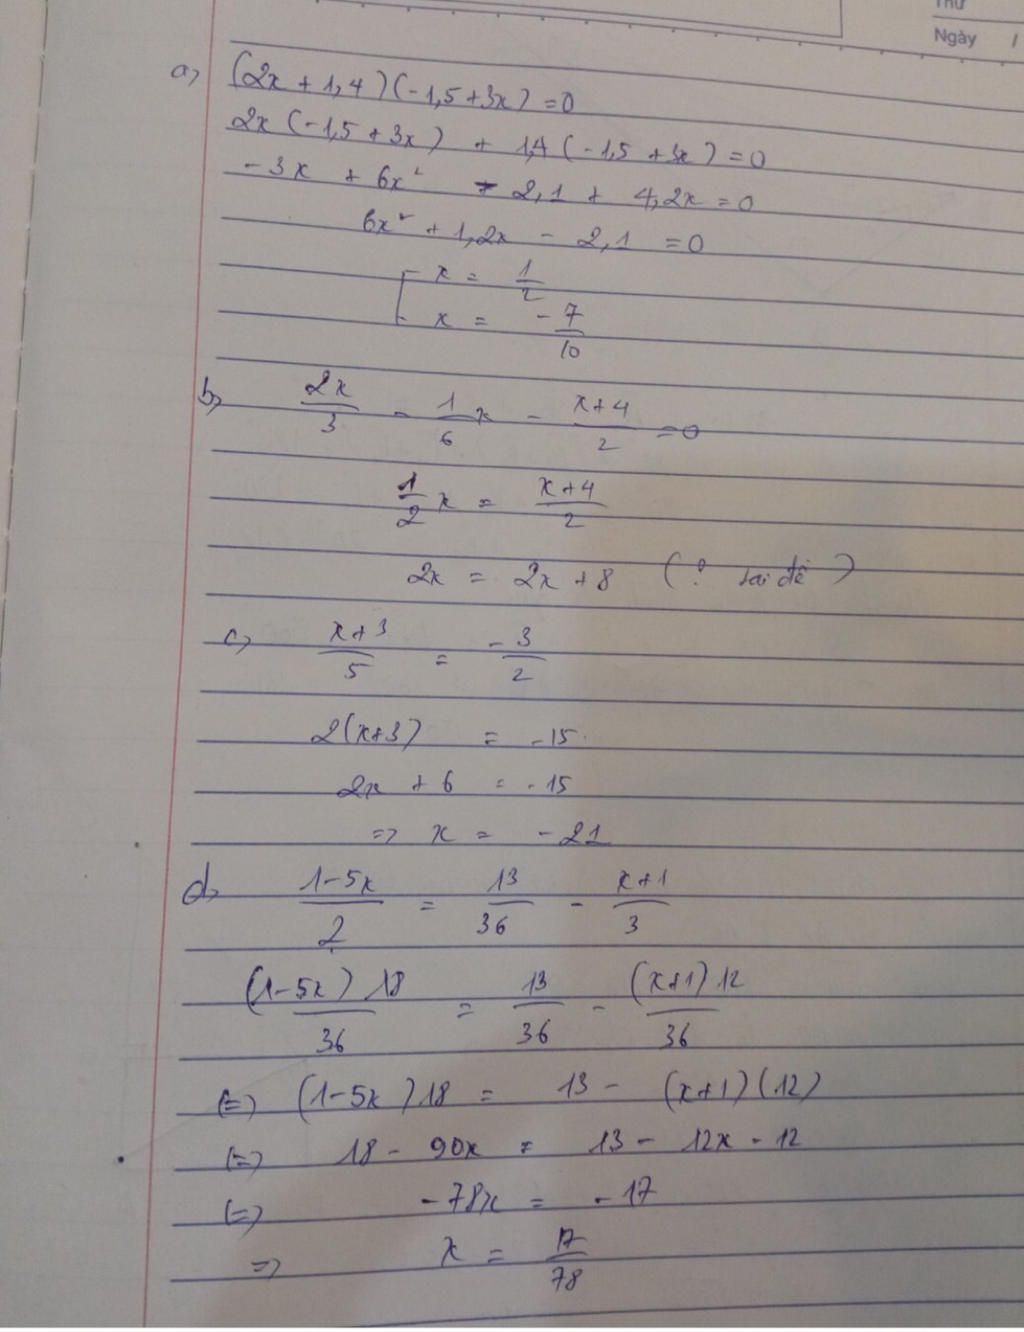 Thứ
Ngày /
a) (2x + 1,4)(-1,5 + 3x) = 0
2x(-1,5 + 3x) + 1,4(-1,5 + 3x) = 0
-3x + 6x² - 2,1 + 4,2x = 0
6x² + 1,2x - 2,1 = 0
[ x = 1/2
x = -7/10
b) 2x/3 - 1/6 x - x+4/2 = 0
1/2 x = x+4/2
2x = 2x + 8 (? sai đề)
c) x+3/5 = -3/2
2(x+3) = -15
2x + 6 = -15
=> x = -21
d) 1-5x/2 = 13/36 - x+1/3
(1-5x)18/36 = 13/36 - (x+1)12/36
(=) (1-5x)18 = 13 - (x+1)(12)
(=) 18 - 90x = 13 - 12x - 12
(=) -78x = -17
=> x = 17/78